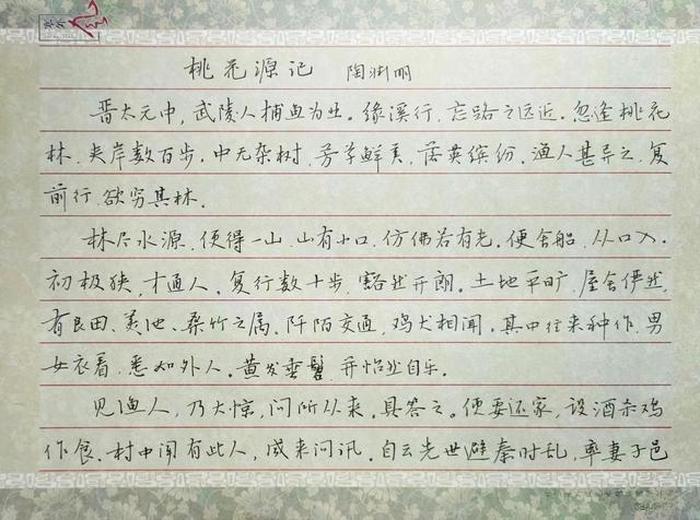 桃花源记 陶渊明
晋太元中,武陵人捕鱼为业。缘溪行,忘路之远近。忽逢桃花
林,夹岸数百步,中无杂树,芳草鲜美,落英缤纷,渔人甚异之,复
前行,欲穷其林。
林尽水源,便得一山,山有小口,仿佛若有光。便舍船,从口入。
初极狭,才通人。复行数十步,豁然开朗。土地平旷,屋舍俨然,
有良田、美池、桑竹之属。阡陌交通,鸡犬相闻。其中往来种作,男
女衣着,悉如外人。黄发垂髫,并怡然自乐。
见渔人,乃大惊,问所从来,具答之。便要还家,设酒杀鸡
作食。村中闻有此人,咸来问讯。自云先世避秦时乱,率妻子邑